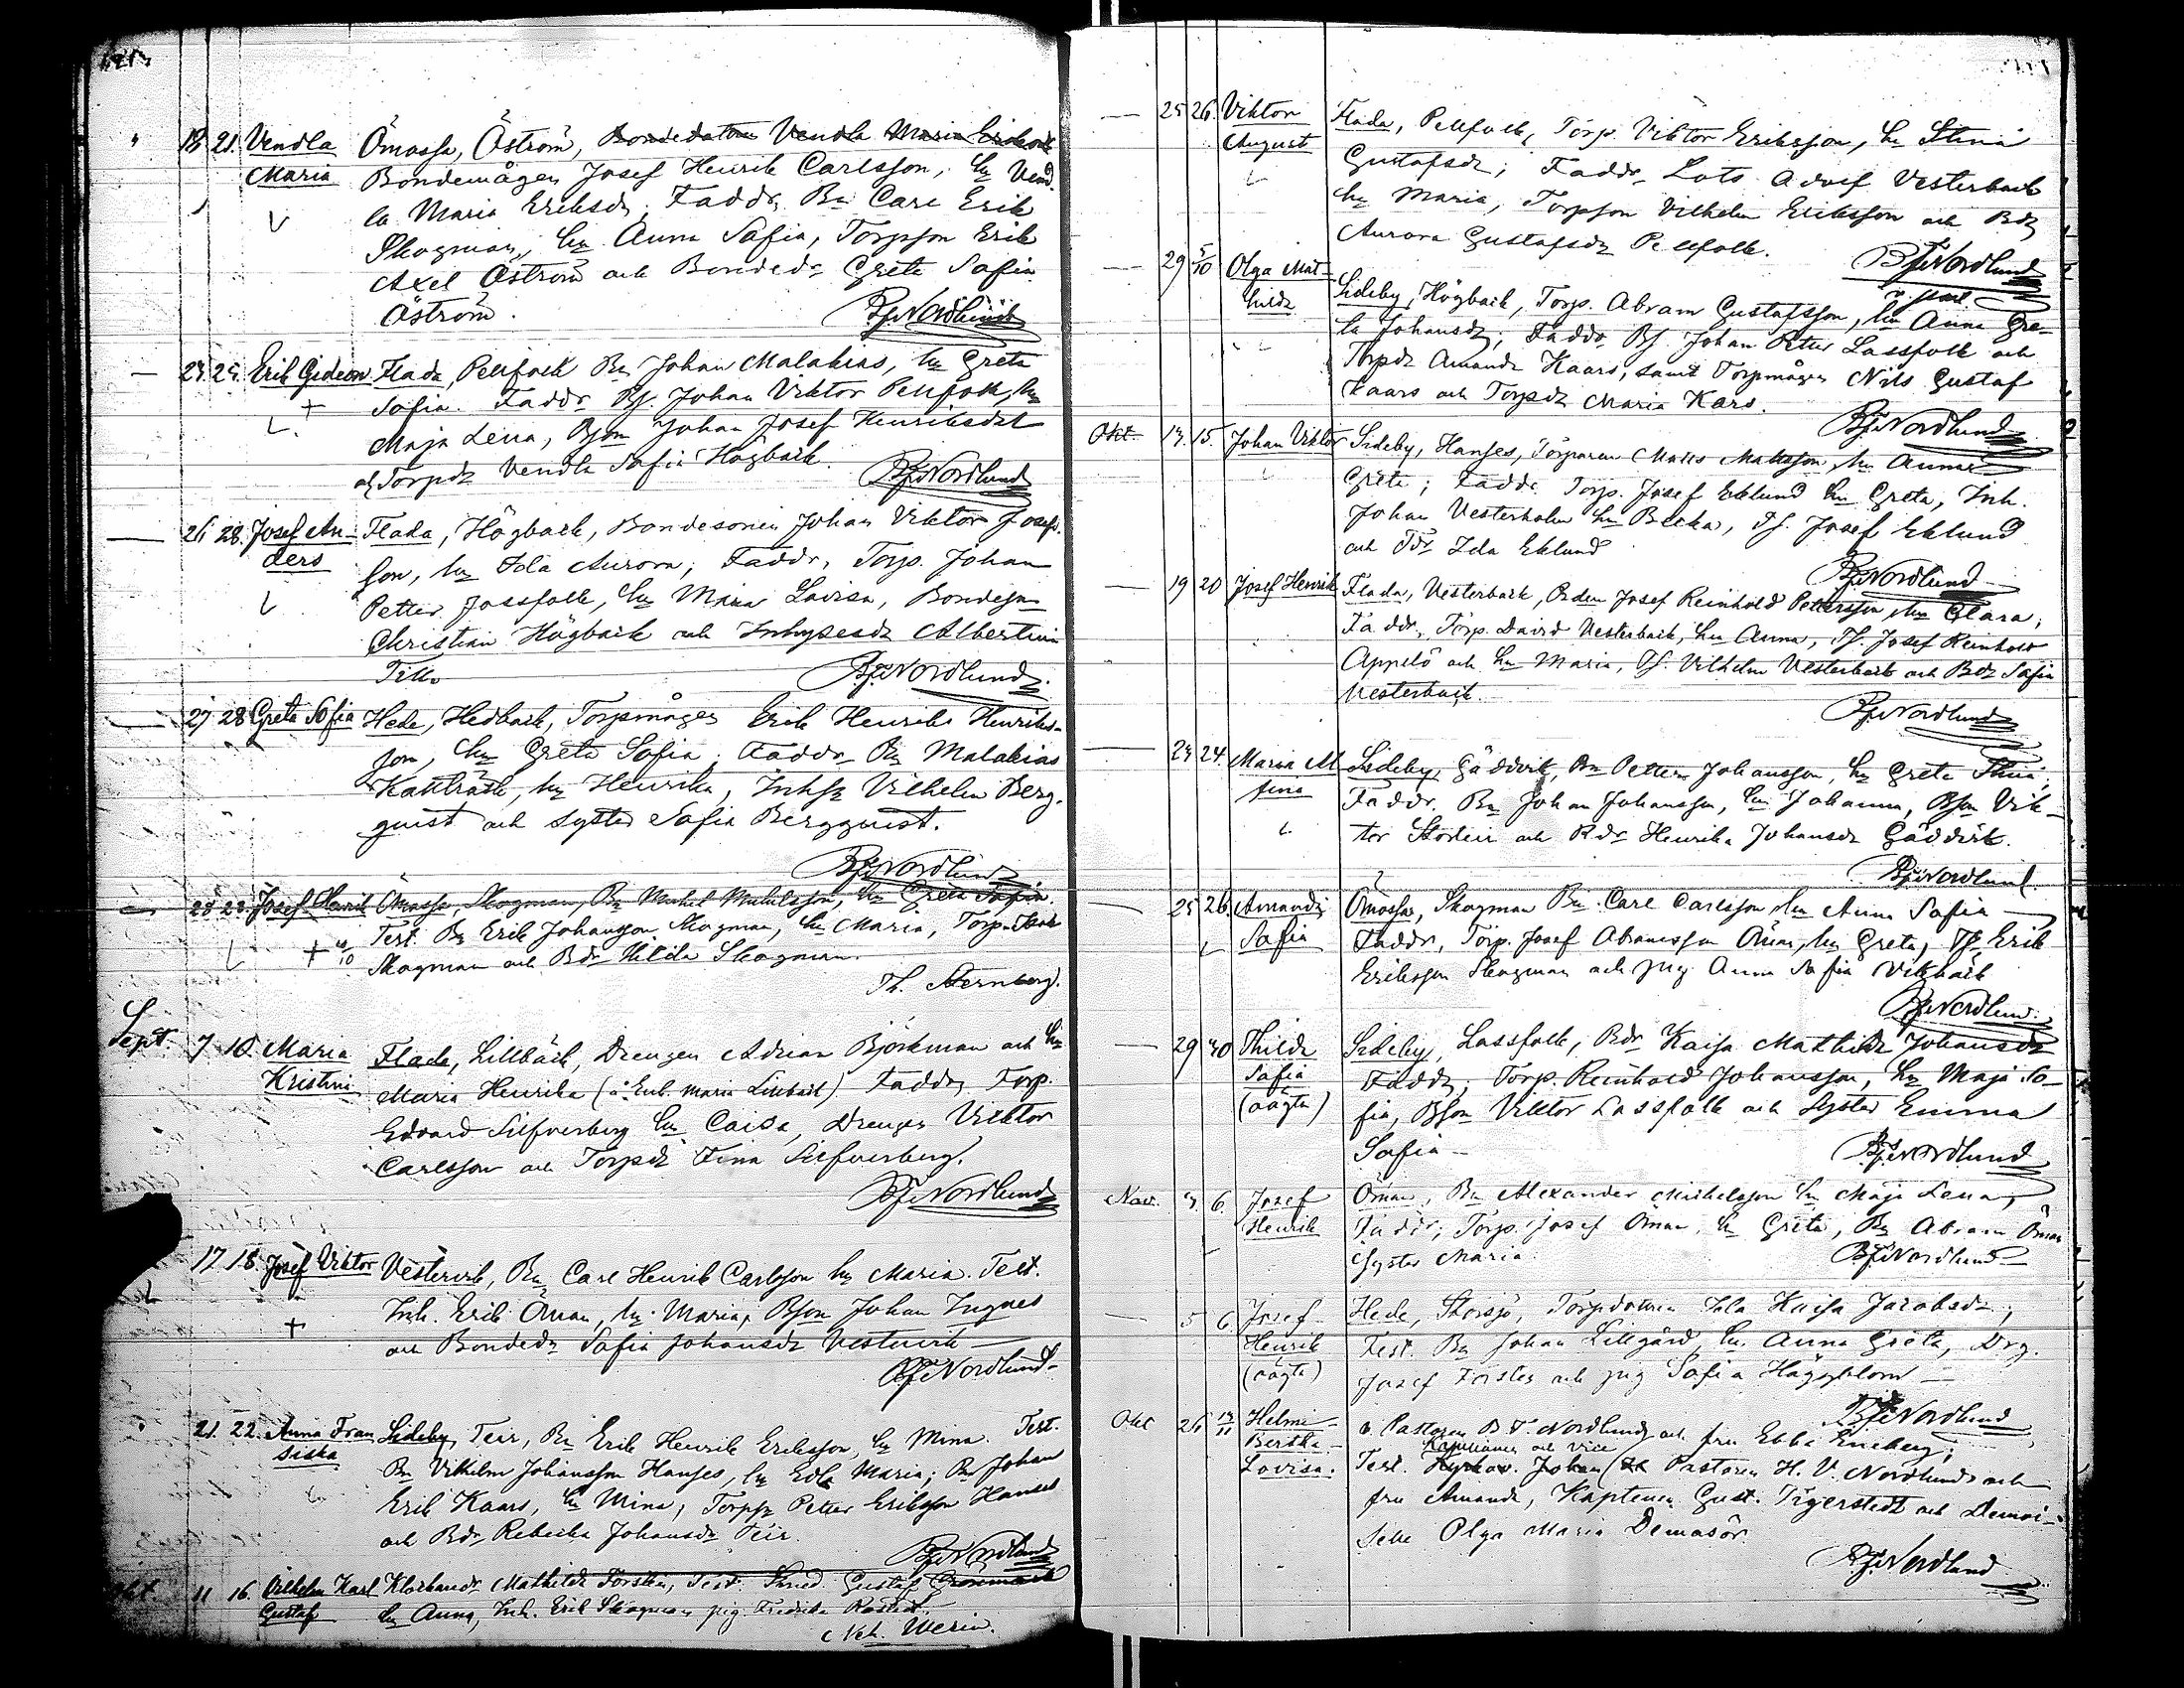 18 21. Vendla Ömossa, Åström, Bondedottren Vendla Maria Eriksdr
Maria Bondemågen Josef Henrik Carlsson, hu Vend-
la Maria Eriksdr, Faddr, Bn Carl Erik
Skogman, hu Anna Sofia, Torpson Erik
Axel Åström och Bondedr Greta Sofia
Åström.
BFNordlund
Erik Gideon Flada, Pellfolk Bn Johan Malakias, hu Greta
Sofia. Faddr Johan Viktor Pellfolk, hu
Maja Lena, Bson Johan Josef Henriksdal
och Torpdr Vendla Sofia Högback.
BFNordlund
26 28. Josef An- Flada, Högback, Bondesonen Johan Viktor Josefs-
ders son, hu Ida Aurora; Faddr, Torp. Johan
Petter Jossfolk, hu Maria Lovisa, Bondeson
Christian Högback och Inhysesdr Albertina
BFNordlund
27 28 Greta Sofia Hede, Hedback, Torpmågen Erik Henrik Henriks-
son, hu Greta Sofia; Faddr Bn Malakias
hu Henrika, Vilhelm Berg-
quist och syster Sofia Bergquist.
BFNordlund
28 28. Josef Henrik Ömossa, Skogman, Bn Mickel Mickelsson, hu Greta Sofia.
Test. Bn Erik Johansson Skogman, hu Maria, Torp. Isak
Skogman och Bdr Hilda Skogman.
Th. Sternberg.
Sept. 7 10. Maria Flada, Lillbäck, Drengen Adrian Björkman och hu
Kristina Maria Henrika Faddr, Torp.
Edvard Silfverberg hu Caisa, Drengen Viktor
Carlsson och Torpdr Fina Silfverberg.
BFNordlund
17 18. Josef Viktor Vestervik, Bn Carl Henrik Carlsson hu Maria. Test.
Inh. Erik Öman, hu Maria, Bson Johan Ingves
och Bondedr Sofia Johansdr Vestervik
BFNordlund
21. 22. Anna Fran Sideby, Teir, Bn Erik Henrik Eriksson, hu Mina. Test.
siska Bn Vilhelm Johansson Hanses, hu Edla Maria; Bn Johan
Erik Kaars, hu Mina, Petter Eriksson Hanses
och Bdr Rebecka Johansdr Teir.
BFNordlund
Okt. 11 16. Vilhelm Karl Mathilda Forsten, Test. Smed. Gustaf Grönmark
Gustaf hu Anna, Inh. Erik Skogman pig. Fredrika
25 26. Viktor Flada, Pellfolk, Torp. Viktor Eriksson, hu Stina
August Gustafsdr; Faddr Lots Adolf Vesterback
hu Maria, Torpson Vilhelm Eriksson och Bdr
Aurora Gustafsdr Pellfolk.
BFNordlund
29 5/10 Olga Mat- Sideby, Högback, Torp. Abram Gustafsson, hu Anna Gre-
hilda ta Johansdr; Faddr Bs. Johan Petter Lassfolk och
Torpdr Amanda Kaars, samt Torpmågen Nils Gustaf
Kaars och Torpdr Maria Kars.
BFNordlund
Okt. 15. Johan Viktor Sideby, Hanses, Torparen Matts Mattsson, hu Anna
Greta; Faddr Torp. Josef Eklund hu Greta, Inh.
Johan Vesterholm hu Brita, Ts. Josef Eklund
och Tdr Ida Eklund
BFNordlund
19 20 Josef Henrik Flada, Vesterback, Josef Reinhold Pettersson, hu Clara;
Faddr, Torp. David Vesterback, hu Anna, Ts. Josef Reinhold
Appelö och hu Maria, Ts. Vilhelm Vesterback och Bdr Sofia
Vesterback.
BFNordlund
24. Maria Sideby, Gäddvik, Bn Petter Johansson, hu Greta Stina;
Faddr. Bn Johan Johansson, hu Johanna, Bson Vik-
tor och Bdr Henrika Johansdr Gäddvik.
BFNordlund.
25 26. Amanda Ömossa, Skogman Bn. Carl Carlsson hu Anna Sofia
Sofia Faddr, Torp. Josef Abramsson Öman, hu Greta, Ts. Erik
Eriksson Skogman och pig Anna Sofia
BFNordlund.
29 30 Thilda Sideby, Lassfolk, Bdr Kaisa Mathilda Johansdr
Sofia Faddr; Torp. Reinhold Johansson, hu Maja So-
(oägta) fia, Bson Viktor Lassfolk och Syster Emma
Sofia
BFNordlund
Nov. 3. 6. Josef Öman, Bn Alexander Mickelsson hu Maja Lena,
Henrik Faddr; Torp. Josef Öman, hu Greta, Bn Abram Öman
Syster Maria.
BFNordlund
5 6. Josef Hede, Storsjö, Torpdottren Ida Kaisa Jacobsdr,
Henrik Test. Bn Johan Lillgård, hu Anna Greta, Drg.
(oägta) Josef Forsten och pig Sofia Häggblom
BFNordlund
Okt 26 Helmi Pastoren B. F. Nordlund, och fru Ebba Eneberg;
Kapellanen och vice
Bertha Test. Johan Pastoren H. V. Nordlund och
Lovisa. fru Amanda, Kaptenen Gust. Tigerstedt och Demoi-
selle Olga Maria
BFNordlund